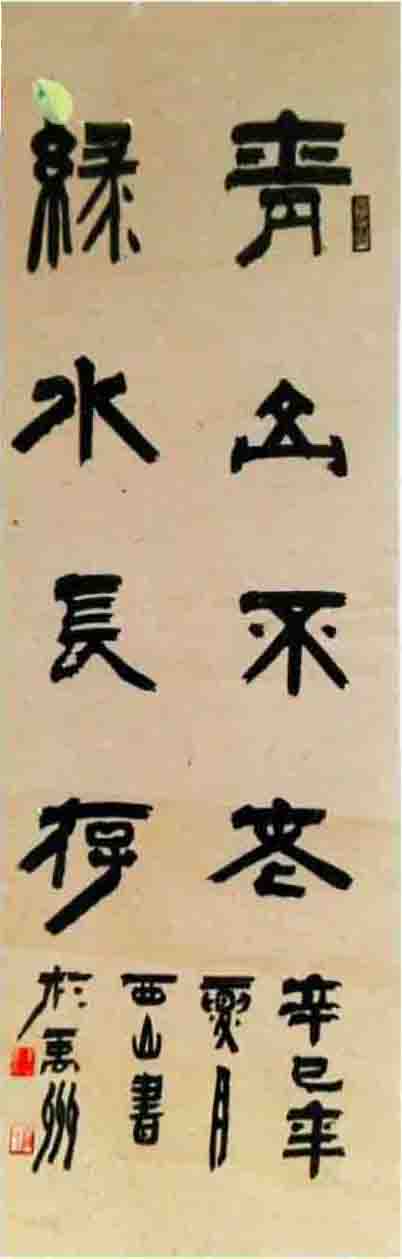 青山不老
緑水長存
辛巳年
夏月
西山書
於禹州